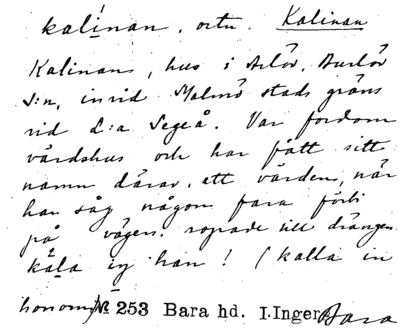 kalinan, ortn. Kalinan
Kalinans, hus i Arlöv, Burlöv
S:n, invid Malmö stads gräns
vid L:a Segeå. Var fordom
värdshus och har fått sitt
namn därav, att värden, när
han såg någon fara förbi
på vägen, ropade till drängen
kāla iņ han! (kalla in
honom) № 253 Bara hd. I. Ingers Bara